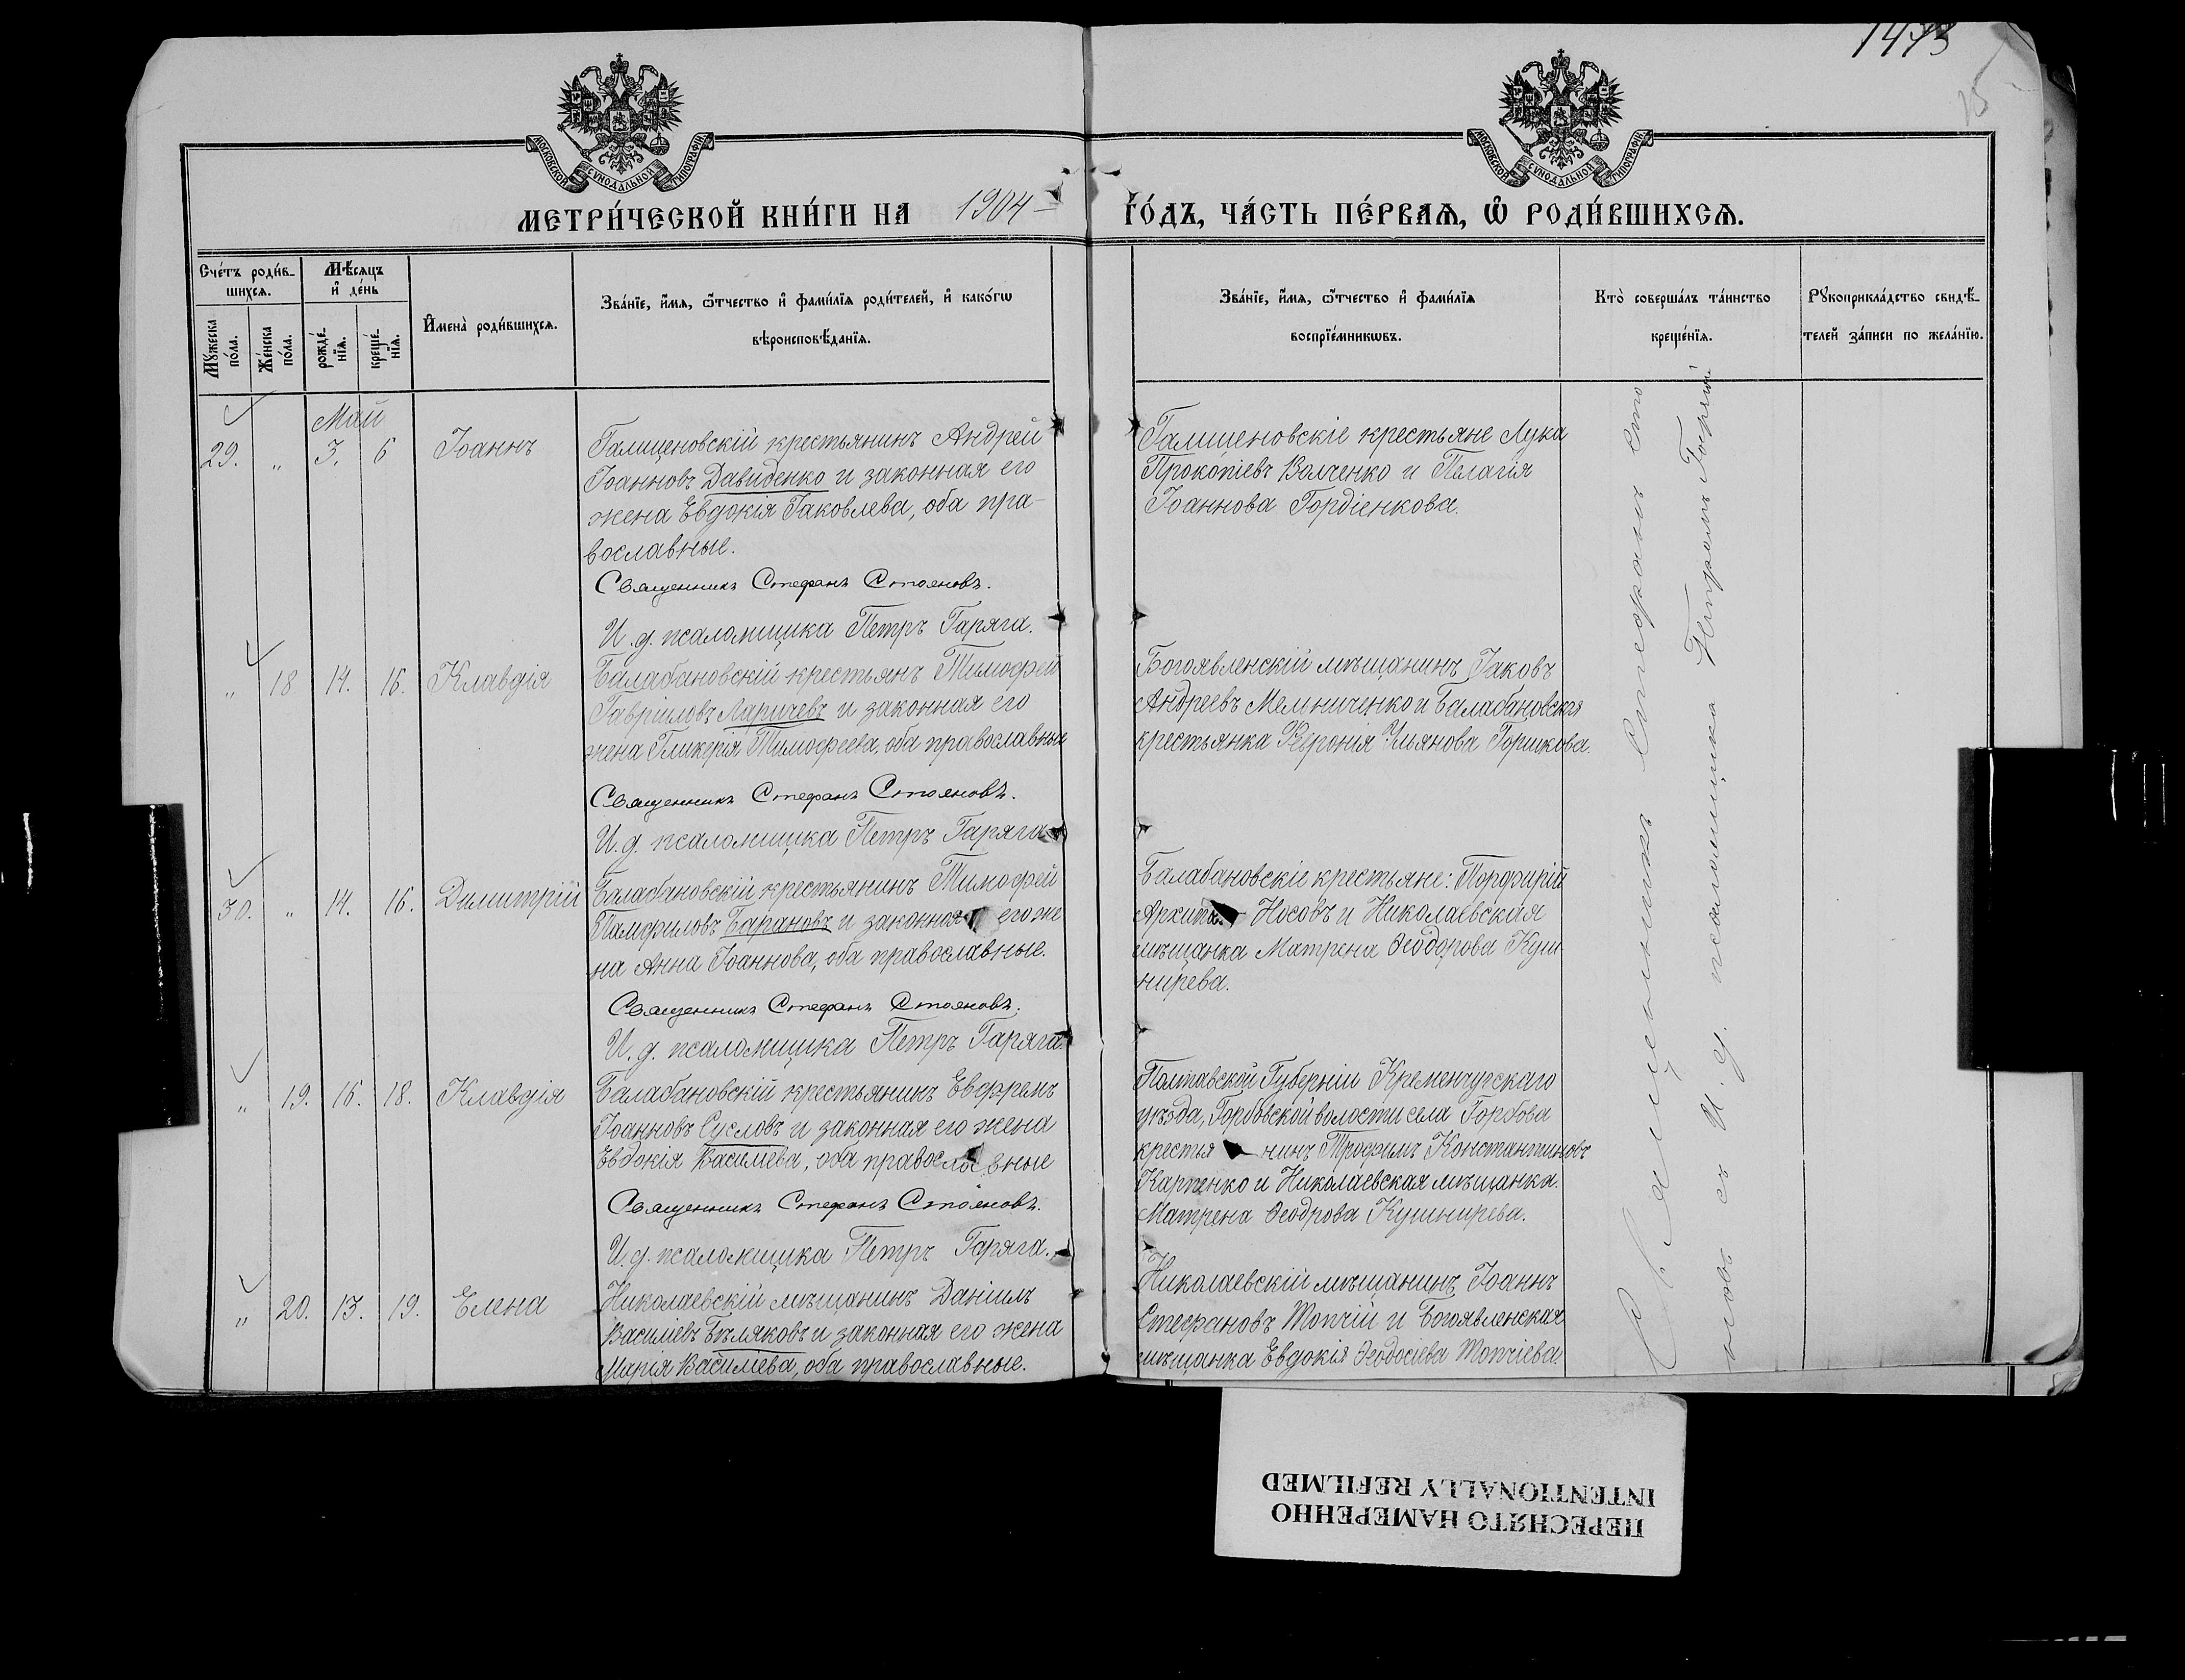 1473
15
МОСКОВСКОЙ СУНОДАЛЬНОЙ ТИПОГРАФІИ
МОСКОВСКОЙ СУНОДАЛЬНОЙ ТИПОГРАФІИ
МЕТРИ́ЧЕСКОЙ КНИ́ГИ НА 1904 ГО́ДЪ, ЧА́СТЬ ПЕ́РВАѦ, Ѽ РОДИ́ВШИХСѦ.
Сче́тъ роди́в-
шихсѧ.
Мꙋжеска
по́ла.
Же́нска
по́ла.
Мѣ́сѧцъ
и҆ де́нь
рожде́-
нїѧ.
креще́-
нїѧ.
И҆мена̀ роди́вшихсѧ.
Зва́нїе, и҆́мѧ, ѻ҆́тчество и҆ фами́лїѧ роди́телей, и҆ како́гѡ
вѣроисповѣ́данїѧ.
Зва́нїе, и҆́мѧ, ѻ҆́тчество и҆ фами́лїѧ
воспрїе́мникѡвъ.
Кто̀ соверша́лъ та́инство
креще́нїѧ.
Рꙋкоприкла́дство свидѣ́-
телей за́писи по жела́нїю.
Май
29. " 3. 6 Іоаннъ
Галиценовскій крестьянинъ Андрей
Іоанновъ Давиденко и законная его
жена Евдокія Іаковлева, оба пра-
вославные.
Священникъ Стефанъ Стояновъ.
И. д. псаломщика Петръ Гаряга.
Галиценовскіе крестьяне Лука
Прокопіевъ Волченко и Пелагія
Іоаннова Гордіенкова.
" 18 14. 16. Клавдія
Балабановскій крестьянъ Тимофей
Гавриловъ Ларичевъ и законная его
жена Гликерія Тимофеева, оба православные
Священникъ Стефанъ Стояновъ.
И. д. псаломщика Петръ Гаряга
Богоявленскій мѣщанинъ Іаковъ
Андреевъ Мельниченко и Балабановская
крестьянка Феѵронія Ульянова Горшкова.
30. " 14. 16. Димитрій
Балабановскій крестьянинъ Тимофей
Памфиловъ Барановъ и законная его же
на Анна Іоаннова, оба православные.
Священникъ Стефанъ Стояновъ.
И. д. псаломщика Петръ Гаряга.
Балабановскіе крестьяне: Порфирій
Носовъ и Николаевская
мѣщанка Матрена Ѳеодорова Куш
нирева.
" 19. 16. 18. Клавдія
Балабановскій крестьянинъ Евфремъ
Іоанновъ Сусловъ и законная его жена
Евдокія Василіева, оба православные
Священникъ Стефанъ Стояновъ.
И. д. псаломщика Петръ Гаряга.
Полтавской Губерніи Кременчугскаго
уѣзда, Горбовской волости села Горбова
крестья нинъ Трофимъ Константиновъ
Карпенко и Николаевская мѣщанка
Матрена Ѳеодрова Кушнирева.
" 20. 13. 19. Елена
Николаевскій мѣщанинъ Даніилъ
Василіевъ Бѣляковъ и законная его жена
Марія Василіева, оба православные.
Николаевскій мѣщанинъ Іоаннъ
Стефановъ Топчій и Богоявленская
мѣщанка Евдокія Ѳеодосіева Топчіева.
Священникъ Стефанъ Сто
яновъ съ И. д. псаломщика Петромъ
ПЕРЕСНЯТО НАМЕРЕННО
INTENTIONALLY REFILMED